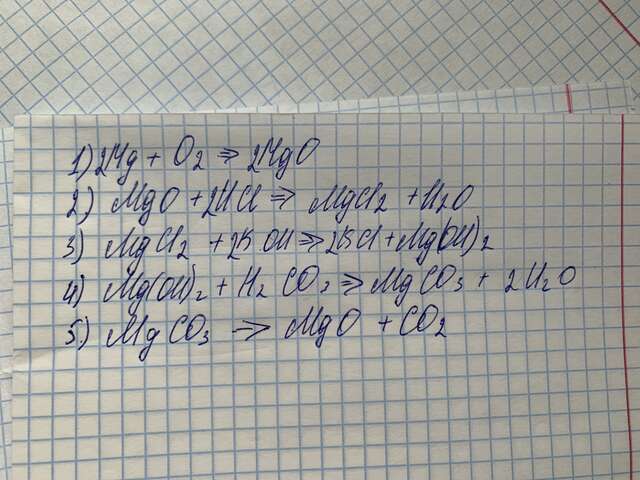 1) 2Mg + O2 ⇒ 2MgO
2) MgO + 2HCl ⇒ MgCl2 + H2O
3) MgCl2 + 2KOH ⇒ 2KCl + Mg(OH)2
4) Mg(OH)2 + H2CO3 ⇒ MgCO3 + 2H2O
5) MgCO3 → MgO + CO2